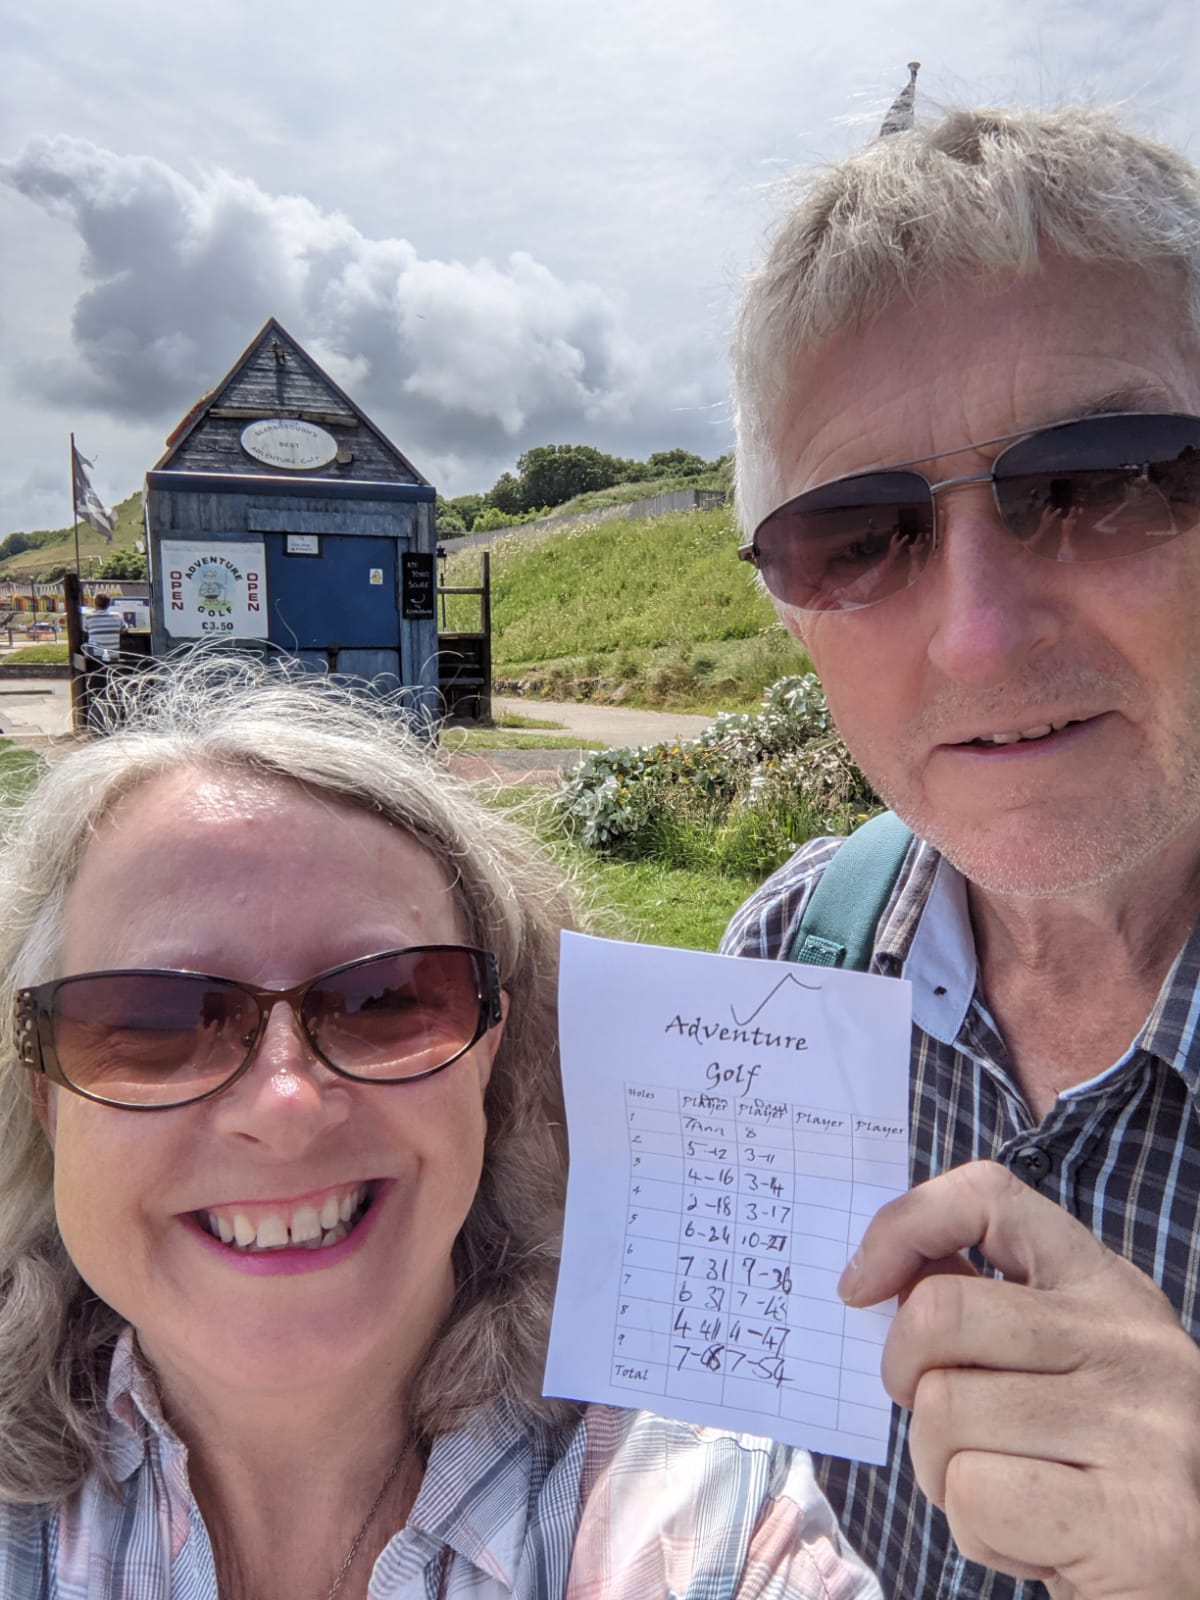 SCARBOROUGH'S
BEST
ADVENTURE GOLF
OPEN
ADVENTURE
GOLF
OPEN
£3.50
Adventure
Golf
Holes Player Player Player Player
1 7 8
2 5-12 3-11
3 4-16 3-14
4 2-18 3-17
5 6-24 10-27
6 7 31 7-36
7 6 37 7-43
8 4 41 4-47
9 7-48 7-54
Total